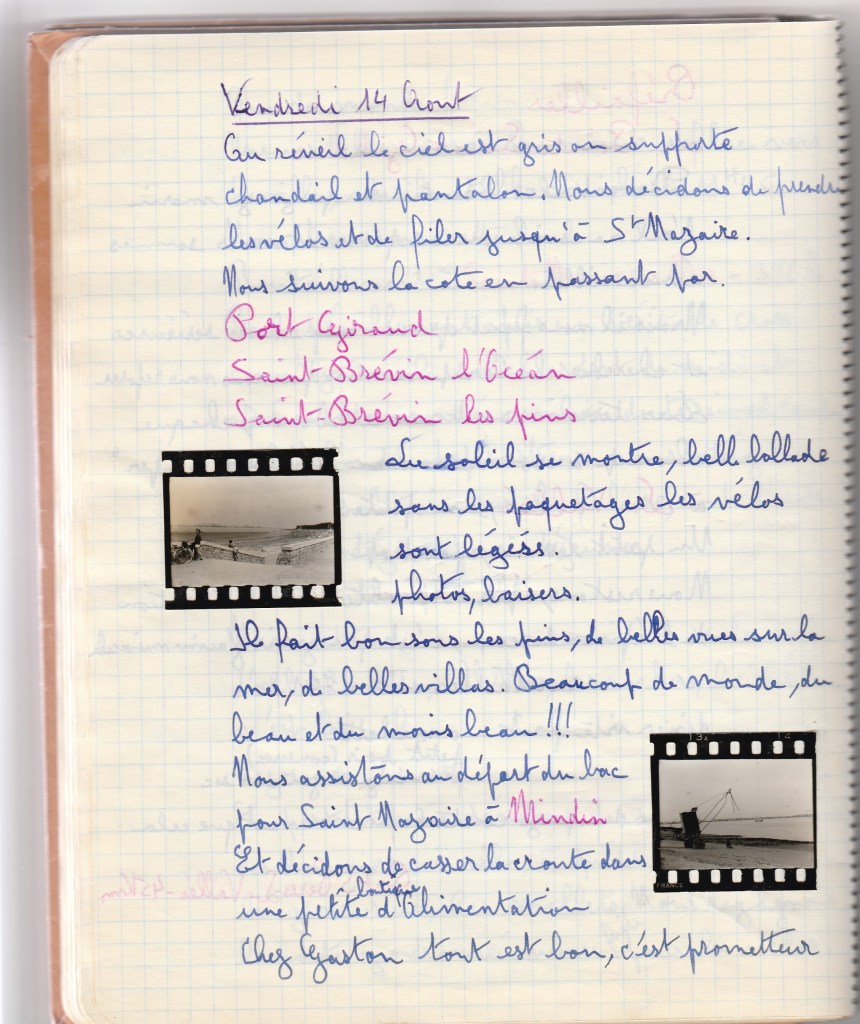 Vendredi 14 Aout
Au réveil le ciel est gris on supporte
chandail et pantalon. Nous décidons de prendre
les vélos et de filer jusqu'à St Nazaire.
Nous suivons la cote en passant par.
Port Giraud
Saint-Brévin l'Océan
Saint-Brévin les pins
Le soleil se montre, belle ballade
sans les paquetages les vélos
sont légers.
photos, baisers.
Il fait bon sous les pins, de belles vues sur la
mer, de belles villas. Beaucoup de monde, du
beau et du moins beau !!!
13A 14
Nous assistons au départ du bac
pour Saint Nazaire à Mindin
Et décidons de casser la croute dans
FRANCE
une petite boutique d'Alimentation
Chez Gaston tout est bon, c'est prometteur